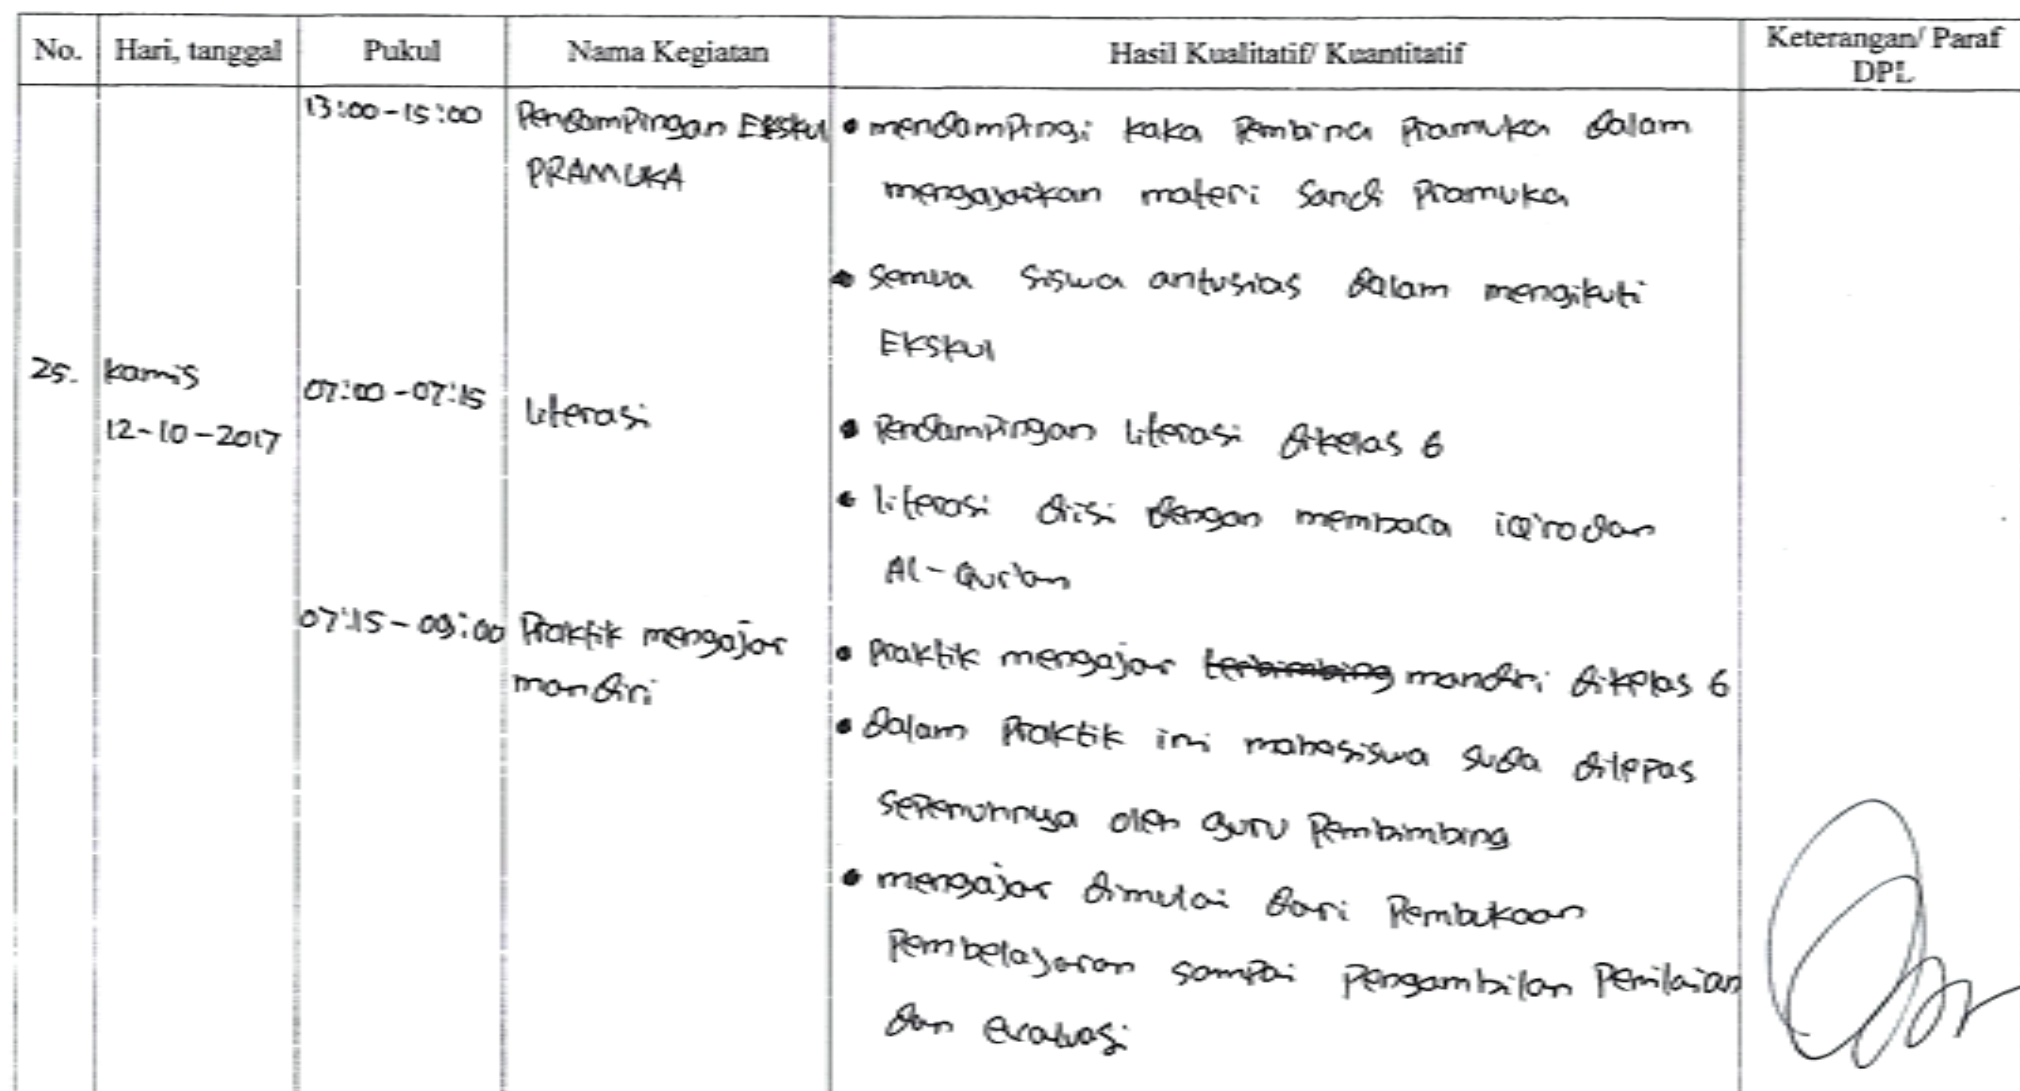 No. Hari, tanggal Pukul Nama Kegiatan Hasil Kualitatif/ Kuantitatif Keterangan/ Paraf DPL
13:00-15:00 Pendampingan Ekskul • mendampingi kaka Pembina Pramuka dalam
PRAMUKA mengajarkan materi Sandi Pramuka
• Semua siswa antusias dalam mengikuti
EKSKul
25. kamis 07:00-07:15 Literasi
12-10-2017 • Pendampingan Literasi dikelas 6
• literasi diisi dengan membaca iQ'ro dan
Al-Qur'an
07:15-09:00 Praktik mengajar • Praktik mengajar terbimbing mandiri dikelas 6
mandiri
• dalam Praktik ini mahasiswa suda dilepas
sepenuhnya oleh guru Pembimbing
• mengajar dimulai dari Pembukaan
Pembelajaran sampai Pengambilan Penilaian
dan evaluasi